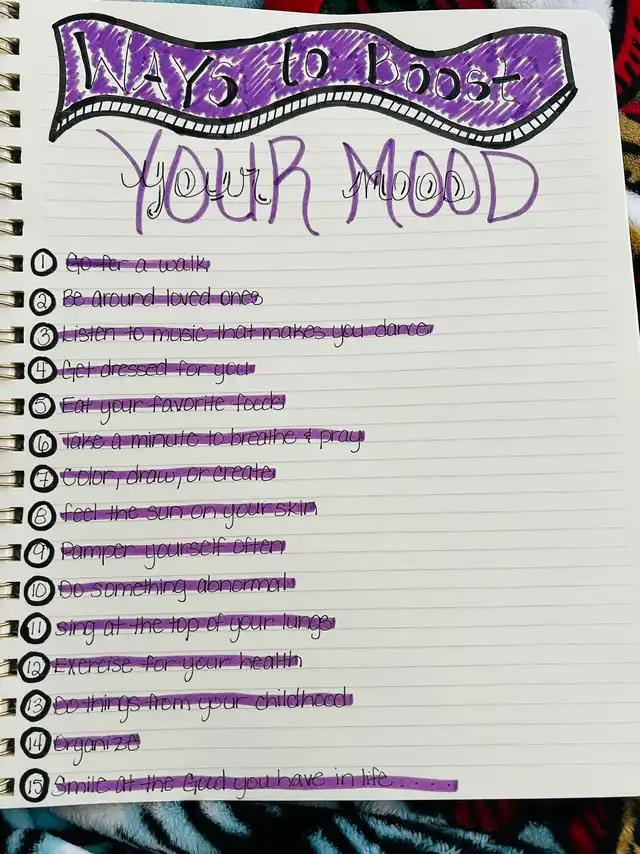 WAYS to BOOST
YOUR MOOD
your mood
1 Go for a walk
2 Be around loved ones
3 Listen to music that makes you dance
4 Get dressed for you
5 Eat your favorite foods
6 Take a minute to breathe & pray
7 Color, draw, or create
8 feel the sun on your skin
9 Pamper yourself often
10 Do something abnormal
11 sing at the top of your lungs
12 Exercise for your health
13 Do things from your childhood
14 Organize
15 Smile at the Good you have in life.....